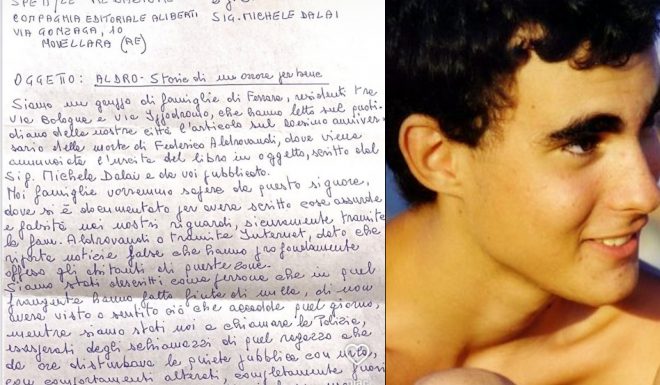 SPETT/LE REDAZIONE
COMPAGNIA EDITORIALE ALIBERTI SIG. MICHELE DALAI
VIA GONZAGA, 10
NOVELLARA (RE)
OGGETTO: ALDRO - Storie di un onore per bene
Siamo un gruppo di famiglie di Ferrara, residenti tra
Via Bologna e Via Ippodromo, che hanno letto sul quoti-
diano della nostra città l'articolo sul anniver-
sario della morte di Federico Aldrovandi, dove viene
annunciata l'uscita del libro in oggetto, scritto dal
Sig. Michele Dalai e da voi pubblicato.
Noi famiglie vorremmo sapere da questo signore,
dove si è documentato per avere scritto cose assurde
e falsità nei nostri riguardi, sicuramente tramite
la fam. Aldrovandi o tramite Internet, dato che
riporta notizie false che hanno profondamente
offeso gli abitanti di queste zone.
Siamo stati descritti come persone che in quel
frangente hanno fatto finta di nulla, di non
avere visto o sentito ciò che accadde quel giorno,
mentre siamo stati noi a chiamare la Polizia,
esasperati degli schiamazzi di quel ragazzo che
da ore disturbava la quiete pubblica con urla,
con comportamenti alterati, completamente fuori